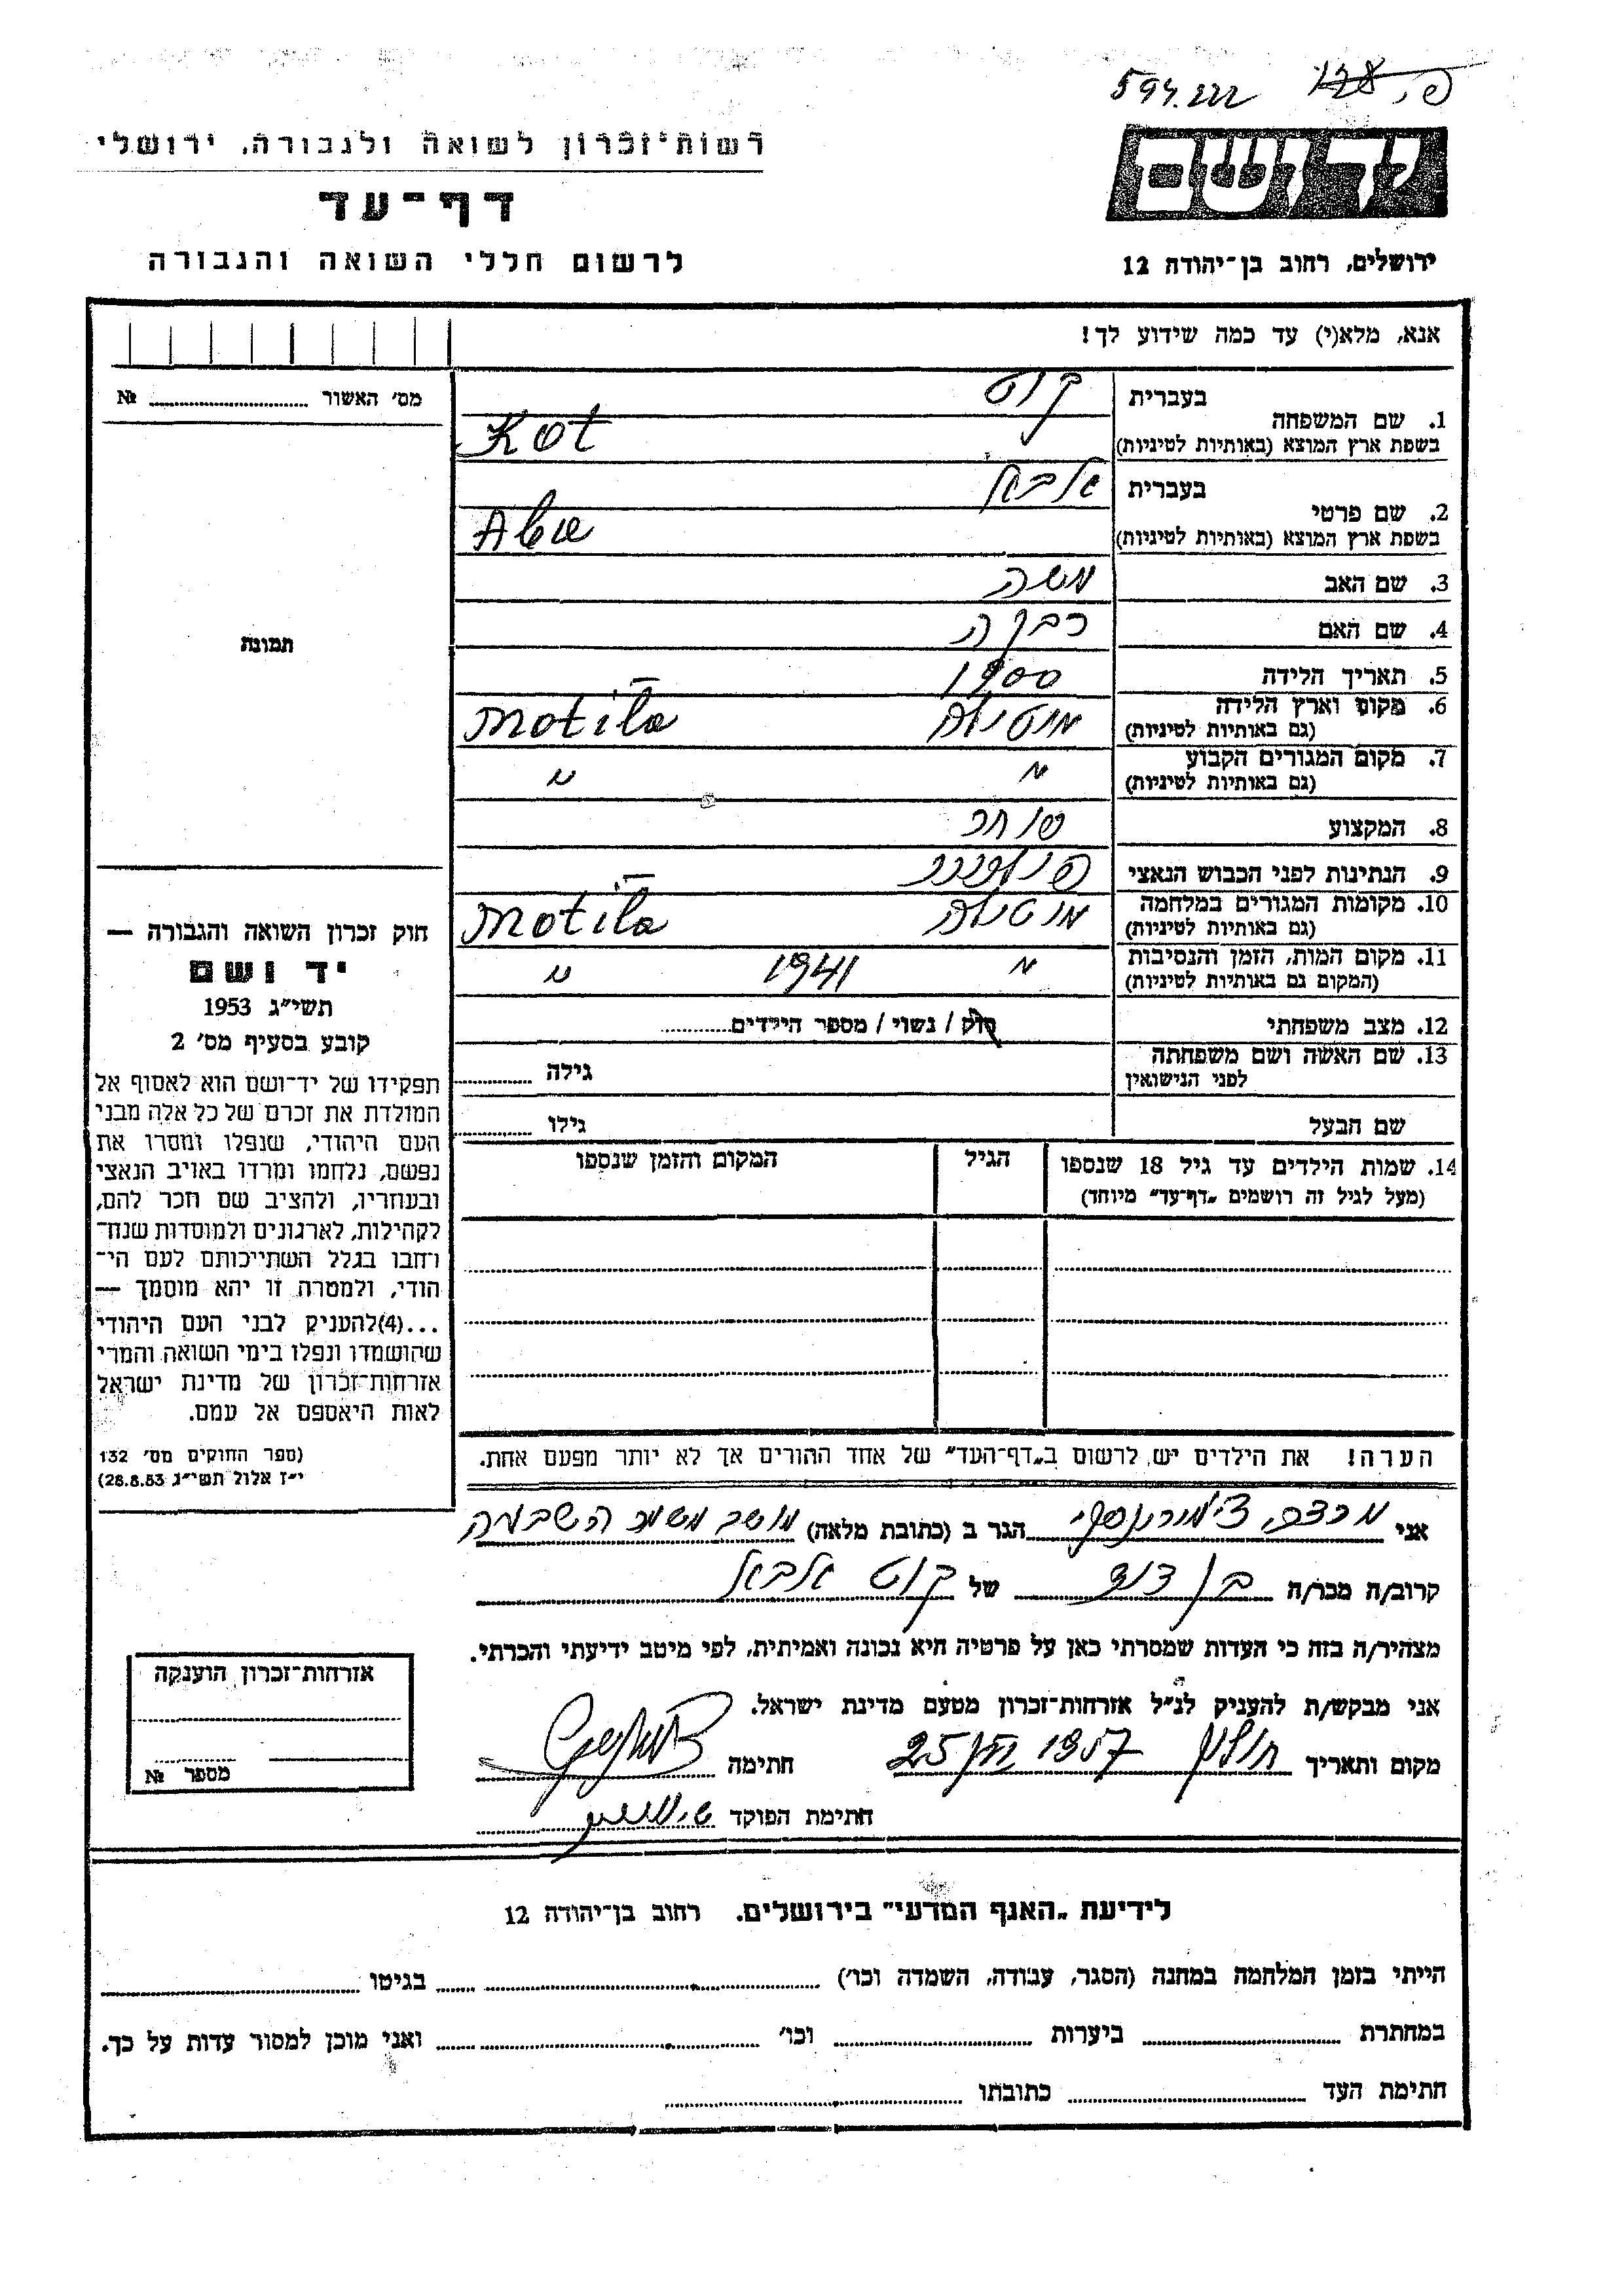 פ. 128 594.222
יד ושם
ירושלים, רחוב בן־יהודה 12
רשות־זכרון לשואה ולגבורה, ירושלי
דף־עד
לרשום חללי השואה והגבורה
אנא, מלא(י) עד כמה שידוע לך!
1. שם המשפחה
בעברית קוט
בשפת ארץ המוצא (באותיות לטיניות) Kot
2. שם פרטי
בעברית
בשפת ארץ המוצא (באותיות לטיניות)
3. שם האב משה
4. שם האם רבקה
5. תאריך הלידה 1900
6. מקום וארץ הלידה
(גם באותיות לטיניות) מוטילה Motila
7. מקום המגורים הקבוע
(גם באותיות לטיניות) " "
8. המקצוע סוחר
9. הנתינות לפני הכבוש הנאצי
10. מקומות המגורים במלחמה
(גם באותיות לטיניות) מוטילה Motila
11. מקום המות, הזמן והנסיבות
(המקום גם באותיות לטיניות) " 1941 "
12. מצב משפחתי רוק / נשוי / מספר הילדים
13. שם האשה ושם משפחתה
לפני הנישואין גילה
שם הבעל גילו
14. שמות הילדים עד גיל 18 שנספו
(מעל לגיל זה רושמים „דף־עד” מיוחד)
הגיל
המקום והזמן שנספו
הערה! את הילדים יש לרשום ב„דף־העד” של אחד ההורים אך לא יותר מפעם אחת.
מס׳ האשור №
תמונה
חוק זכרון השואה והגבורה —
יד ושם
תשי״ג 1953
קובע בסעיף מס׳ 2
תפקידו של יד־ושם הוא לאסוף אל
המולדת את זכרם של כל אלה מבני
העם היהודי, שנפלו ומסרו את
נפשם, נלחמו ומרדו באויב הנאצי
ובעוזריו, ולהציב שם וזכר להם,
לקהילות, לארגונים ולמוסדות שנח־
רחבו בגלל השתייכותם לעם הי־
הודי, ולמטרה זו יהא מוסמך —
...(4)להעניק לבני העם היהודי
שהושמדו ונפלו בימי השואה והמרי
אזרחות־זכרון של מדינת ישראל
לאות היאספם אל עמם.
(ספר החוקים מס׳ 132
י״ז אלול תשי״ג 28.8.53)
אני מרדכי הגר ב (כתובת מלאה) מושב משמר השבעה
קרוב/ה מכר/ה בן דוד של קוט
מצהיר/ה בזה כי העדות שמסרתי כאן על פרטיה היא נכונה ואמיתית, לפי מיטב ידיעתי והכרתי.
אני מבקש/ת להעניק לנ״ל אזרחות־זכרון מטעם מדינת ישראל.
מקום ותאריך חולון 1957 25 חתימה
חתימת הפוקד
אזרחות־זכרון הוענקה
מספר №
לידיעת „האגף המדעי” בירושלים. רחוב בן־יהודה 12
הייתי בזמן המלחמה במחנה (הסגר, עבודה, השמדה וכו׳) בגיטו
במחתרת ביערות וכו׳ ואני מוכן למסור עדות על כך.
חתימת העד כתובתו